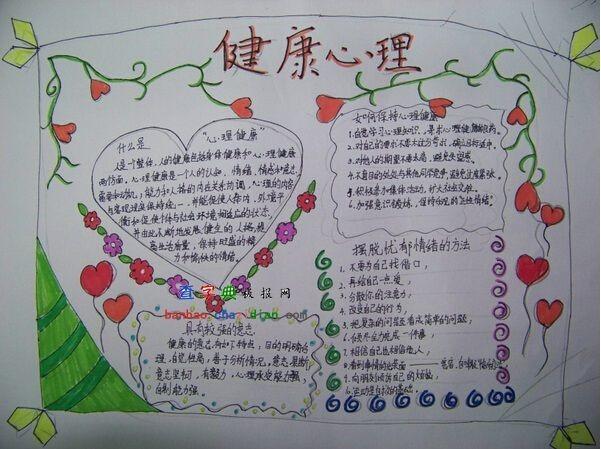 健康心理
什么是 “心理健康”
人是个整体，人的健康包括身体健康和心理健康
两方面。心理健康是一个人的认知、情绪、情感和意志
需要和动机，能力和人格的内在关系协调，心理的内容
与客观现实保持统一，并能促使人体内、外环境平
衡和促使个体与社会环境相适应的状态，
并由此不断地发展健全的人格，提
高生活质量，保持旺盛的精
力和愉快的情绪。
如何保持心理健康
1.自觉学习心理知识，寻求心理健康
2.对自己的要求不要太过分苛求，确立
3.对他人的期望不要太高，避免失望感。
4.不盲目的处处与其他同学竞争，避免过度紧张。
5.积极参加集体活动，扩大社会交往。
6.加强意识锻炼，保持乐观的
查字典板报网
banbao.chazidian.com
具有较强的意志
健康的意志有如下特点，目的明确合
理，自觉性高，善于分析情况，意志果断
意志坚韧，有毅力，心理承受能力强，
自制能力强。
摆脱忧郁情绪的方法
1.不要为自己找借口，
2.再给自己一点爱，
3.分散你的注意力；
4.改变自己的行为，
5.把复杂的问题看成简单的问题，
6.做件
7.相信自己也相信他人，
8.看到事情的光明面
9.向朋友倾诉自己的烦恼，